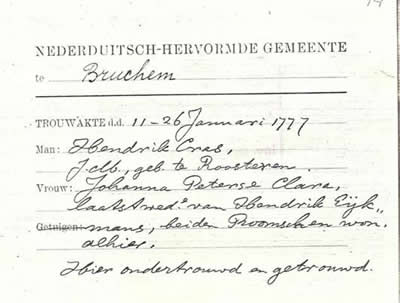 NEDERDUITSCH-HERVORMDE GEMEENTE
te Bruchem
TROUWAKTE d.d. 11-26 Januari 1777
Man: Hendrik Cras,
J.d., geb. te Roosteren.
Vrouw: Johanna Peterse Clara,
laatst wed.e van Hendrik Eijk„
Getuigen: mans, beiden Roomschen won.
alhier.
Hier ondertrouwd en getrouwd.